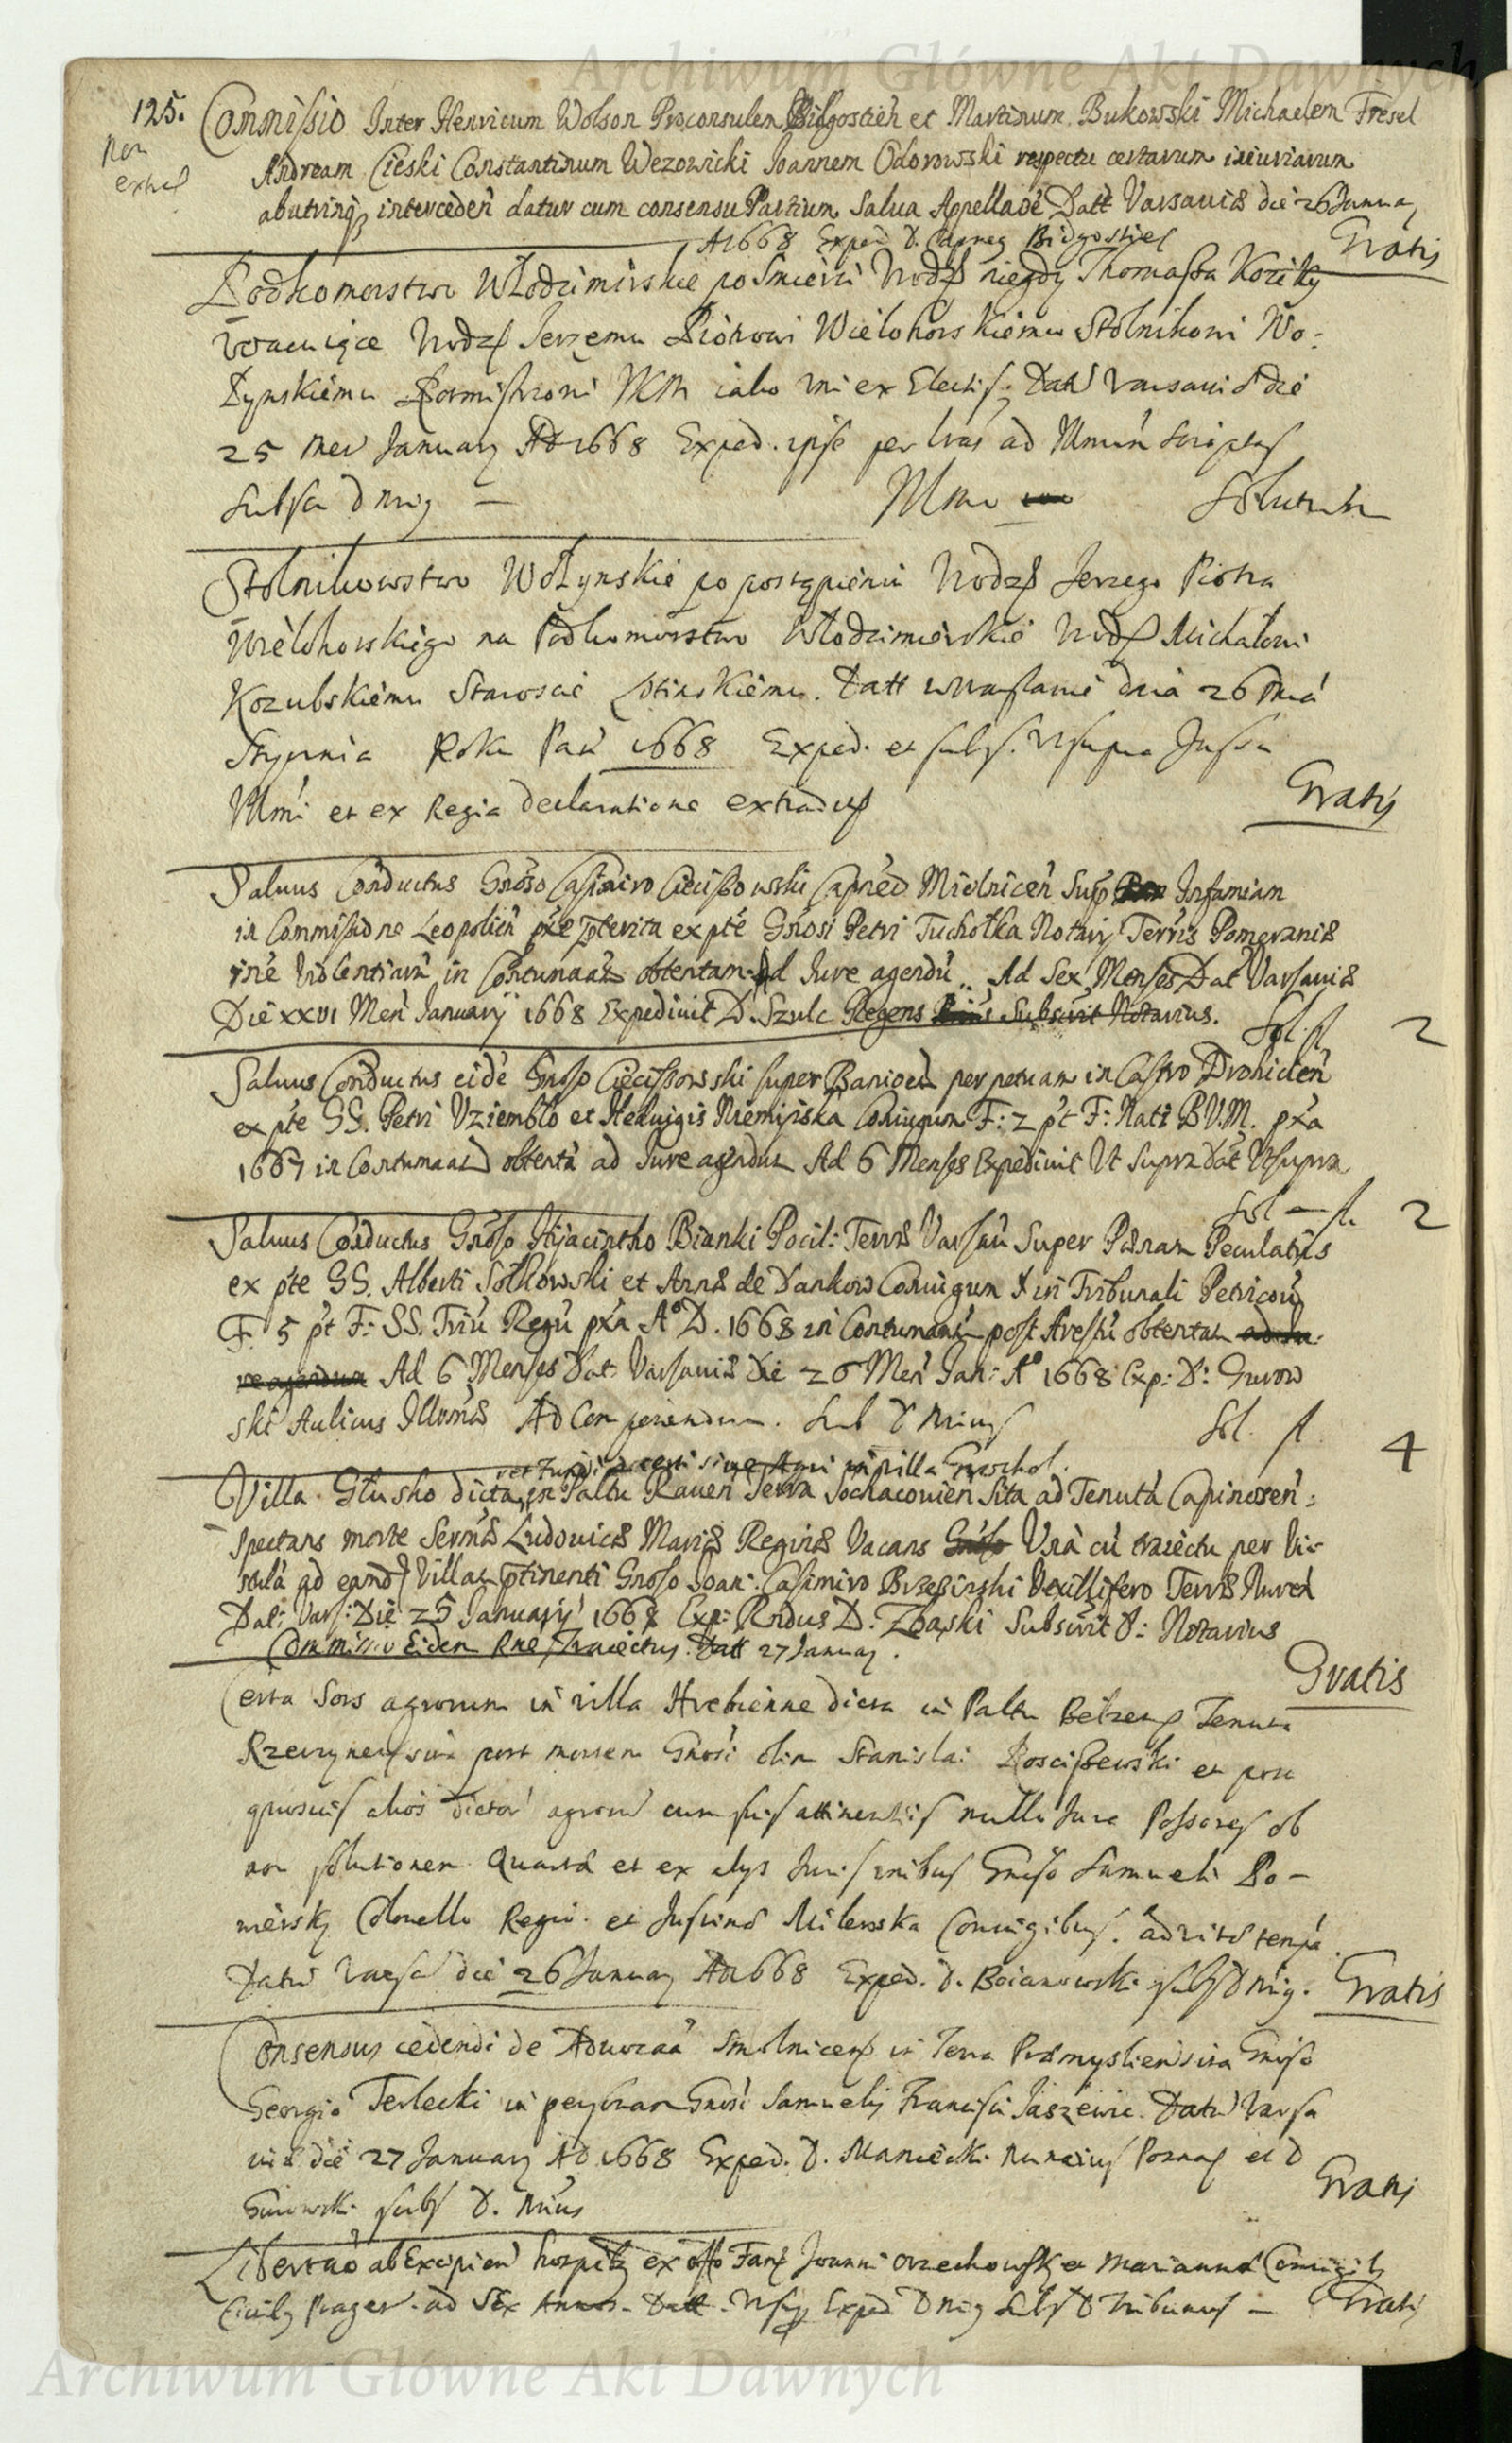 Archiwum Główne Akt Dawnych
125. Commissio Inter Henricum Wolson Proconsulem Bidgostień et Martinum Bukowski Michaelem Fresel
Non
Andream Cieski Constantinum Wezowicki Joannem Odorowski respectu certarum iniuriarum
abutrinq3 interceden̄ datur cum consensu Partium Salua Appellaoē Datt Varsauiæ die 26 Janua
A 1668 Exped D. Bidgostien
Gratis
Podkomorstwo Włodzimirskie po śmierci Urodz niegdy Thomasza Koziky
wacuiące Urodz Jerzemu Piotrowi Wielohorskiemu Stolnikowi Wo:
łynskiemu Rotmistrzowi JKM iako uni ex Electis Datt Varsauiæ die
25 Men January AD 1668 Exped. ipse per lras ad Illmum scriptas
Subscr D Nrig
Solutum
Stolnikowstwo Wołynskie po postąpieniu Urodz Jerzego Piotra
Wielohorskiego na Podkomorstwo Włodzimierskie Urodz Michałowi
Kozubskiemu Staroscie Datt w Warszawie dnia 26 Mcá
Stycznia Roku Pań 1668 Exped. et subs. ut supra Jussu
Illmi et ex Regia declaratione extradit
Gratis
Saluus Conductus Gnoso Casimiro Ciecissowski Capneo Mielnicen̄ Sup Infamiam
in Commissione Leopolien̄ pxe preterita ex pte Gnosi Petri Tuchołka Notarij Terris Pomeraniæ
rne Violentiarū in Contumaciā obtentam Ad Jure agendū Ad Sex Menses Dat Varsauiæ
Die XXVI Men̄ January 1668 Expediuit D. Szulc Regens Subscrit Notarius.
Sol. fl 2
Saluus Conductus eidē Gnoso Ciecissowski super Bannioem perpetuam in Castro Drohicien̄
ex pte GG. Petri Vziembło et Heduigis Niemijska Coniugum F: 2 pt F: Nati B.V.M. pxa
1667 in Contumaciā obtentā ad Jure agendum Ad 6 Menses Expediuit Vt Supra Dat Vtsupra
Sol fl. 2
Saluus Conductus Gnoso Hyjacintho Bianki Pocil: Terræ Varsau Super Pænam Peculatus
ex pte GG. Alberti Sołkowski et Annæ de Dankow Coniugum in Tribunali Petricou
F. 5 pt F: SS. Triū Regū pxa A° D. 1668 in Contumaciam post Arestū obtentam
Ad 6 Menses Dat Varsauiæ Die 26 Men̄ Jan: A° 1668 Exp: D: Gurow
ski Aulicus Illmus Ad Comparendum. Sub D Nrius
Sol. fl. 4
in villa Grochol.
Villa Głusko dicta in Paltu Rauen̄ Terra Sochacouien̄ Sita ad Tenutā Capinosen̄:
Spectans morte Sermæ Ludouicæ Mariæ Reginæ Vacans Vnà cū traiectu per Vi-
stulā ad eand villam ptinenti Gnoso Joan: Casimiro Brzezinski Vexillifero Terræ Nuren̄
Dat: Vars: Die 25 January 1668 Exp: Rndus D. Zbaski Subscrit D: Notarius
Commissio Eidem Rne Traiectus. Datt 27 January.
Gratis
Certa Sors agrorum in villa Hrebienne dicta in Paltu Belzen Tenuta
Rzeczynen sita post mortem Gnosi olim Stanislai Rosciszewski et post
quosuis alios dictor agror cum suis attinentiis nullo Jure Possores ob
non solutionem Quartæ et ex alys Juris Gnoso Samueli Po-
mersky Colonello Regio et Justinæ Milewska Coniugibus. ad vitæ tempa.
Datu Varsa die 26 January AD 1668 Exped. D. Boianowski subs D Nrig.
Gratis
Consensus cedendi de Aduocaa Smolnicen in Terra Præmyslien sita Gnoso
Georgio Terlecki in personam Gnosi Samuelis Francisci Jaszewic. Datu Varsa
uiæ die 27 January AD 1668 Exped. D. Maniecki Nuncius Poznan et D
Gurowski subs D. Nrius
Gratis
Libertao ab Excipien hospitz ex offo Joanni Orzechowsky et Mariannæ Coniugib
Ciuib Pragen. ad Sex Annos. Datt. Vtsup Exped D Nrig Subs D Tribunus
Gratis
Archiwum Główne Akt Dawnych